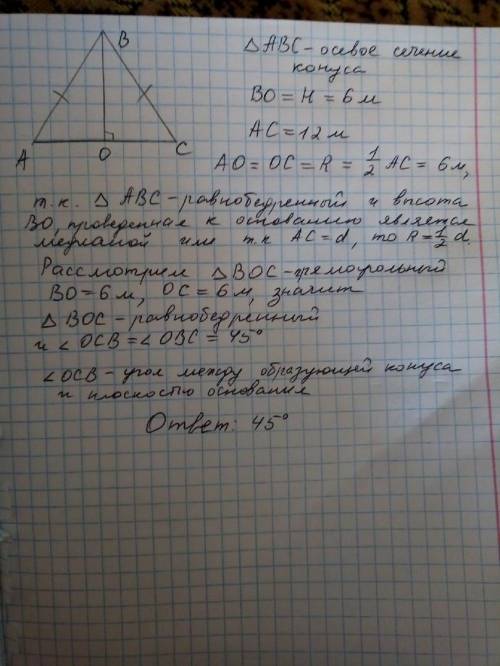 B
A
O
C
△ ABC - осевое сечение
конуса
BO = H = 6 м
AC = 12 м
AO = OC = R = 1/2 AC = 6 м,
т.к. △ ABC - равнобедренный и высота
BO, проведенная к основанию является
медианой или т.к AC = d, то R = 1/2 d.
Рассмотрим △ BOC - прямоугольный
BO = 6 м, OC = 6 м, значит
△ BOC - равнобедренный
и ∠ OCB = ∠ OBC = 45°
∠OCB - угол между образующей конуса
и плоскостью основания
Ответ: 45°